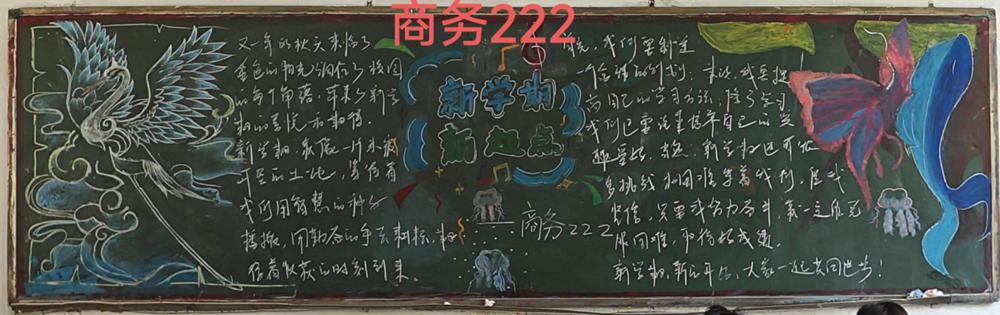 商务222
又一年的秋天来临了
金色的阳光洒在了校园
的每个角落，带来了新学
期的喜悦和期待。
新学期，就像一片未被
开垦的土地，等待着
我们用智慧的种子
播撒，用勤奋的手去耕耘，
着收获的时刻到来。
新学期
新起点
商务222
首先，我们要制定
一个合理的计划，其次，我要提
高自己的学习方法，除了学习
我们还要注重培养自己的兴
趣爱好，当然，新学期还有
多挑战和困难等着我们，但我
坚信，只要我们努力，就一定能克
服困难，取得好成绩。
新学期，新的开始，大家一起共同进步！